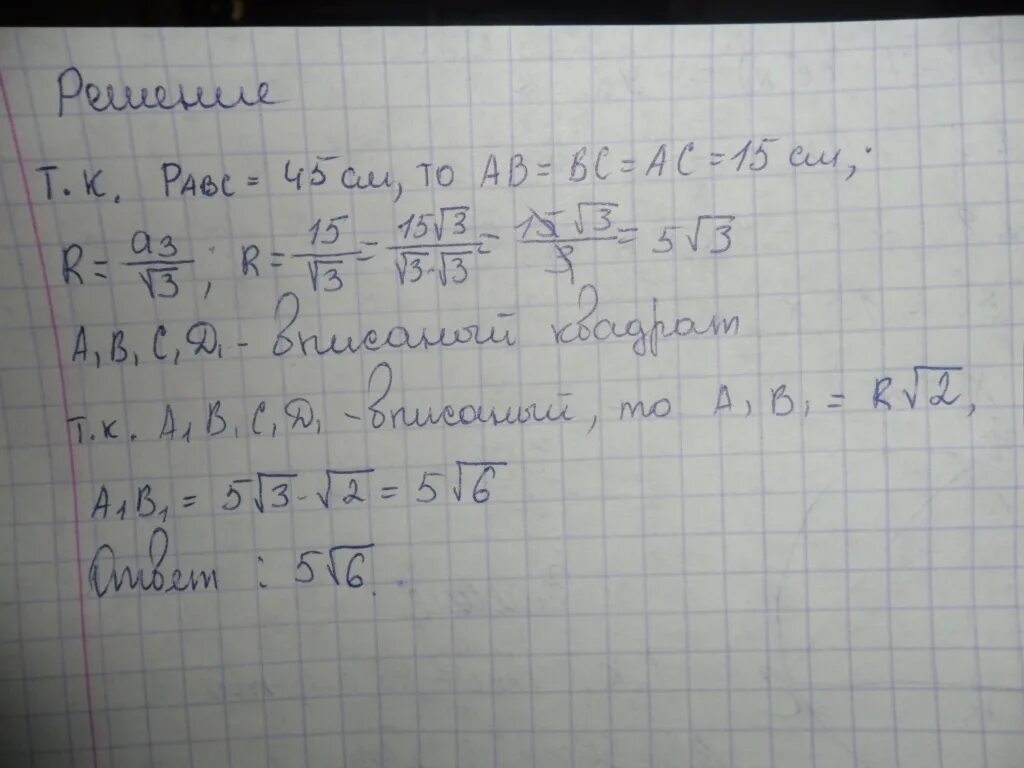 Решение
Т.К. PABC = 45 см, то AB = BC = AC = 15 см,
R = a3/√3; R = 15/√3 = 15√3/√3·√3 = 15√3/3 = 5√3
A1B1C1D1 - вписаный квадрат
т.к. A1B1C1D1 - вписаный, то A1B1 = R√2,
A1B1 = 5√3·√2 = 5√6
Ответ: 5√6.